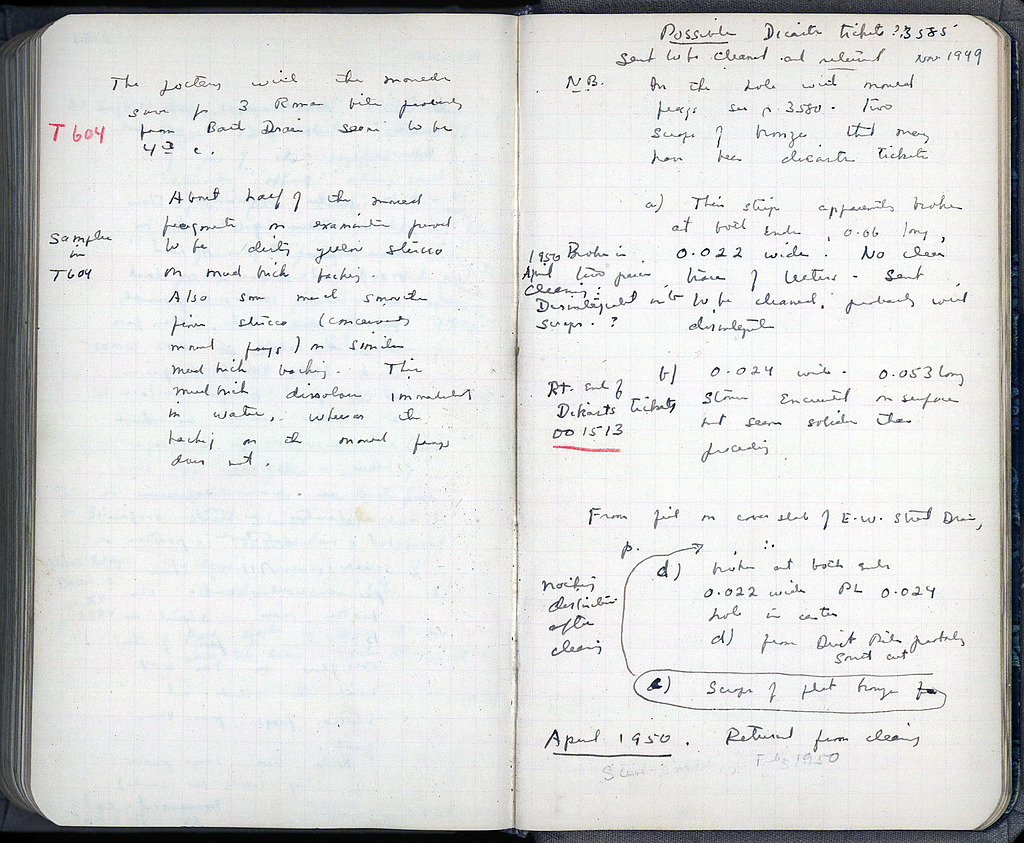 The pottery with the mould
saw p. 3 Roman tiles probably
from East Drain seems to be
4th c.
T 604
About half of the mould
fragments on examination proved
to be dirty yellow stucco
on mud brick backing.
Samples
in
T 604
Also some much smoother
finer stucco (concerning
mould frags) on similar
mud brick backing. This
mud brick dissolves immediately
in water, whereas the
backing on the mould frags
does not.
Possible Dicasts tickets? 3585
Sent to be cleaned and returned Nov 1949
N.B. In the hole with mould
frags see p. 3580. two
scraps of bronze that may
have been dicasts tickets
a) Thin strip apparently broken
at both ends, 0.06 long,
0.022 wide. No clear
trace of letters. Sent
to be cleaned, probably will
disintegrate
1950 Broke in
April two pieces
cleaning:
Disintegrated into
scraps. ?
b) 0.024 wide. 0.053 long
Stone encrusted on surface
but seems solider than
preceding
Rt. end of
Dikasts tickets
001513
From fill on cover slab of E.W. Street Drain,
p.
d) broken at both ends
0.022 wide PL 0.024
hole in center
d) from Dust Pile probably
South cut
nothing
distinctive
after
cleaning
e) Scraps of flat bronze
April 1950. Returned from cleaning
1950